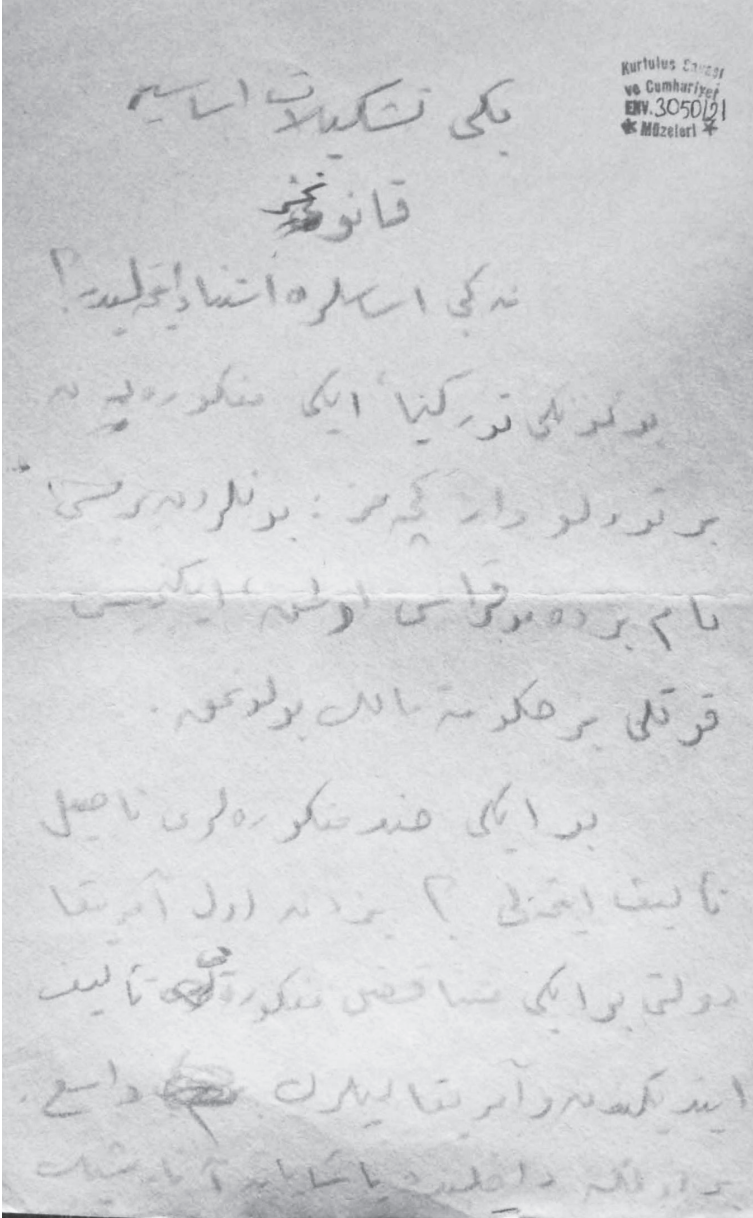 Kurtuluş Savaşı
ve Cumhuriyet
ENV. 3050/21
Müzeleri
یكی تشكیلات اساسیه
قانونمز
نه كبی اساسلره استناد ایتملیدر؟
بوكونكی توركیا، ایكی مفكوره یه
بر تورلو وار كچه مز : بونلردن بریسی
تام بر ده موقراسی اولمق، ایكنجیسی
قوتلی بر حكومته مالك بولونمق.
بو ایكی ضد مفكوره لری ناصیل
تألیف ایتملی ؟ بزدن اول آمریقا
دولتی بو ایكی متناقض مفكوره یی تألیف
ایتدیكندن آمریقالیلرك واسع
بر داخلنده یاشایان